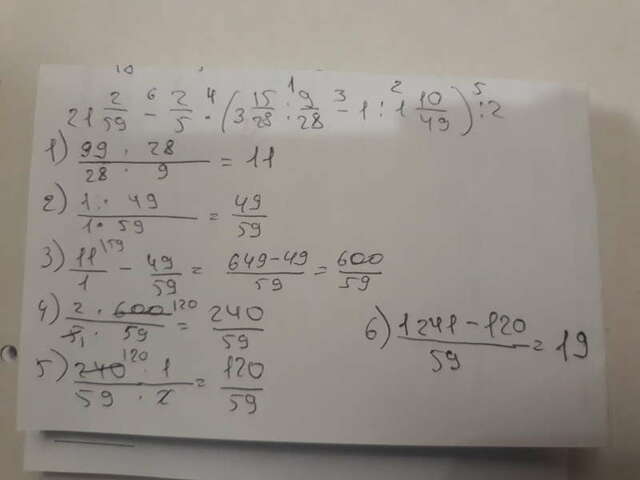 21 2/59 - 2/5 · (3 15/28 : 9/28 - 1 : 1 10/49) : 2
1) 99 · 28 / 28 · 9 = 11
2) 1 · 49 / 1 · 59 = 49/59
3) 11/1 - 49/59 = 649-49/59 = 600/59
4) 2 · 600 120 / 5 1 · 59 = 240/59
5) 240 120 · 1 / 59 · 2 = 120/59
6) 1241 - 120 / 59 = 19